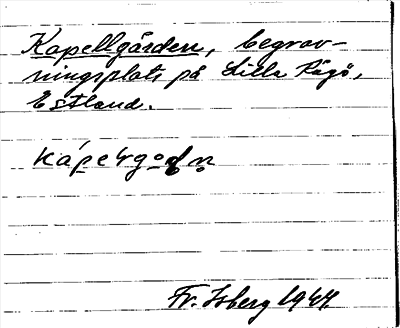 Kapellgården, begrav-
ningsplats på Lilla Rågö,
Estland.
Fr. Isberg 1944